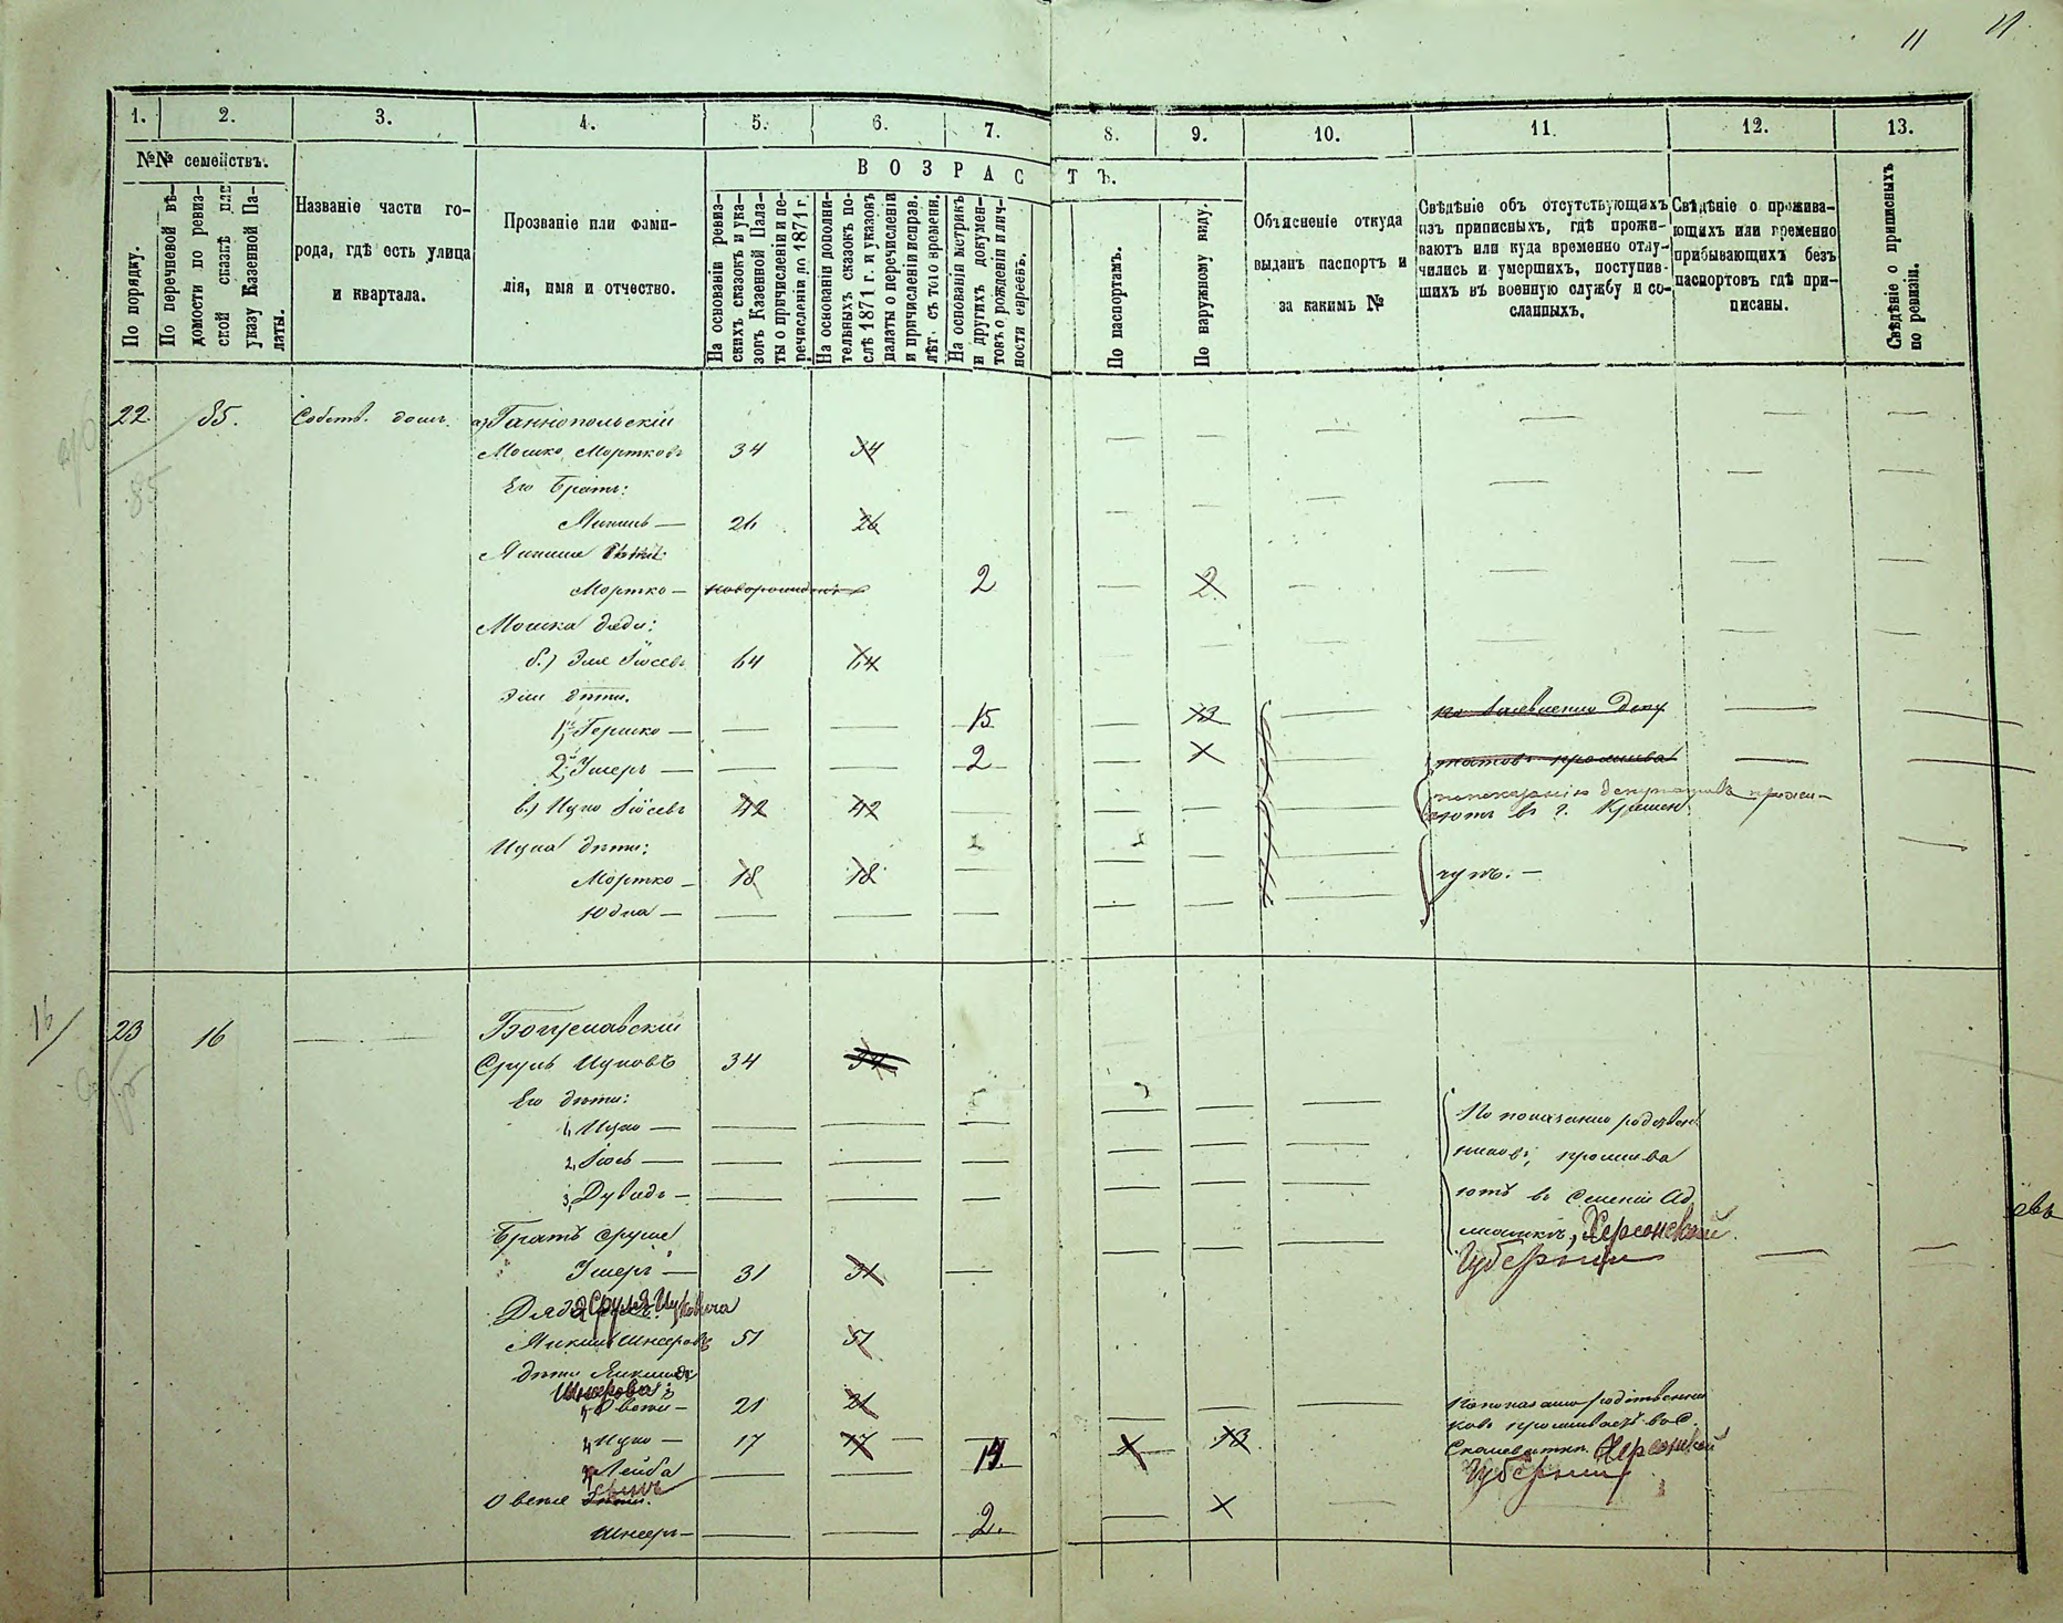 11 11
1. 2. 3. 4. 5. 6. 7. 8. 9. 10. 11. 12. 13.
№№ семействъ.
ВОЗРАСТЪ.
По порядку.
По перечневой вѣ-
домости по ревиз-
ской сказкѣ или
указу Казенной Па-
латы.
Названіе части го-
рода, гдѣ есть улица
и квартала.
Прозваніе или фами-
лія, имя и отчество.
На основаніи ревиз-
скихъ сказокъ и ука-
зовъ Казенной Пала-
ты о причисленіи и пе-
речисленіи до 1871 г.
На основаніи дополни-
тельныхъ сказокъ по-
слѣ 1871 г. и указовъ
палаты о перечисленіи
и причисленіи исправ.
лѣт. съ того времени.
На основаніи метрикъ
и другихъ докумен-
товъ о рожденіи и лич-
ности евреевъ.
По паспортамъ.
По наружному виду.
Объясненіе откуда
выданъ паспортъ и
за какимъ №
Свѣдѣніе объ отсутствующихъ
изъ приписныхъ, гдѣ прожи-
ваютъ или куда временно отлу-
чились и умершихъ, поступив-
шихъ въ военную службу и со-
сланныхъ.
Свѣдѣніе о прожива-
ющихъ или временно
прибывающихъ безъ
паспортовъ гдѣ при-
писаны.
Свѣдѣніе о приписныхъ
по ревизіи.
22. 85. Собств. домъ. а) Ганнопольскій
85
Мошко Мортковъ 34 34
Его братъ:
26 26
Мортко — новорожденъ 2 2
Мошка дядя:
б.) Эле Іосевъ 64 64
Эли дѣти.
1, Гершко — 15 13
2, Ушеръ — 2
в.) Ицко Іосевъ 42 42
по показанію депутатовъ прожи-
ютъ въ г. Кремен
Ицка дѣти:
Мортко — 18 18
чугъ. —
Юдка —
16
23 16 Богуславскій
Сруль Ицковъ 34 34
Его дѣти:
1, Ицко —
2, Іось —
3, Дувидъ —
По показанію родствен
никовъ, прожива
ютъ въ
Херсонской
Губерніи
Братъ Сруля
Ушеръ — 31 31
Дядя Сруля Ицковича
Шнееровъ 51 51
дѣти
Шнеерова:
21 21
2, Ицко — 17 17
3, Лейба 14 13
По показанію родственни
ковъ проживаетъ въ с.
Херсонской
Губерніи
сынъ
Шнееръ — 2.
евъ